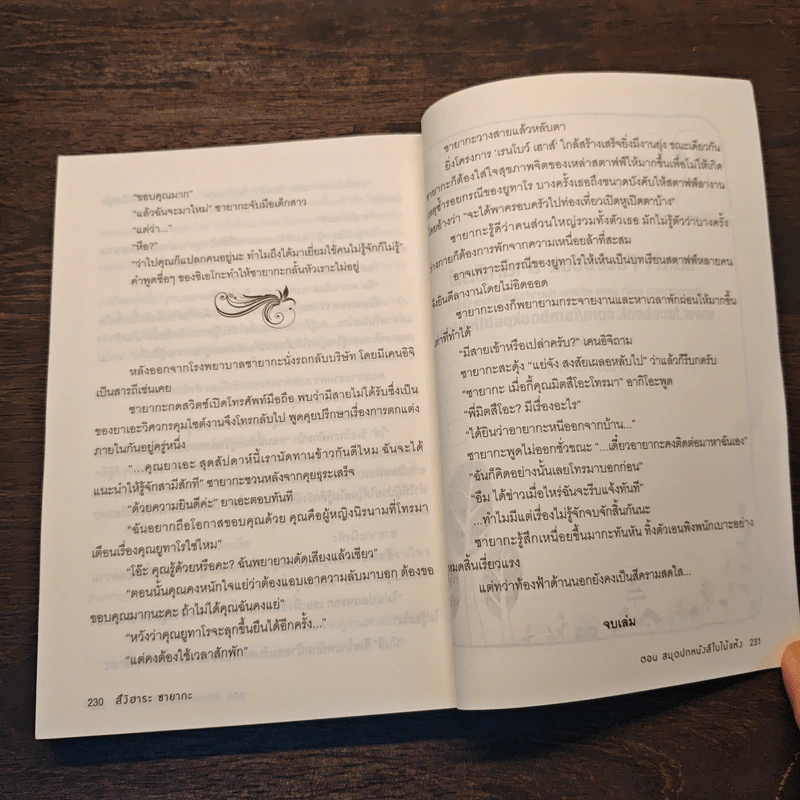 “ขอบคุณมาก”
“แล้วฉันจะมาใหม่” ซายากะจับมือเด็กสาว
“แต่ว่า...”
“หือ?”
“ว่าไปคุณก็แปลกคนอยู่นะ ทำไมถึงได้มาเยี่ยมไข้คนไม่รู้จักก็ไม่รู้”
คำพูดซื่อๆ ของชิเอโกะทำให้ซายากะกลั้นหัวเราะไม่อยู่
หลังออกจากโรงพยาบาลซายากะนั่งรถกลับบริษัท โดยมีเคนอิจิ
เป็นสารถีเช่นเคย
ซายากะกดสวิตช์เปิดโทรศัพท์มือถือ พบว่ามีสายไม่ได้รับซึ่งเป็น
ของยาเอะวิศวกรคุมไซต์งานจึงโทรกลับไป พูดคุยปรึกษาเรื่องการตกแต่ง
ภายในกันอยู่ครู่หนึ่ง
“...คุณยาเอะ สุดสัปดาห์นี้เรานัดทานข้าวกันดีไหม ฉันจะได้
แนะนำให้รู้จักสามีสักที” ซายากะชวนหลังจากคุยธุระเสร็จ
“ด้วยความยินดีค่ะ” ยาเอะตอบทันที
“ฉันอยากถือโอกาสขอบคุณด้วย คุณคือผู้หญิงนิรนามที่โทรมา
เตือนเรื่องคุณยูทาโรใช่ไหม”
“โอ๊ะ คุณรู้ด้วยหรือคะ? ฉันพยายามดัดเสียงแล้วเชียว”
“ตอนนั้นคุณคงหนักใจแย่ว่าต้องแอบเอาความลับมาบอก ต้องขอ
ขอบคุณมากนะคะ ถ้าไม่ได้คุณฉันคงแย่”
“หวังว่าคุณยูทาโรจะลุกขึ้นยืนได้อีกครั้ง...”
“แต่คงต้องใช้เวลาสักพัก”
230 สึงิฮาระ ซายากะ
ซายากะวางสายแล้วหลับตา
ยิ่งโครงการ ‘เรนโบว์ เฮาส์’ ใกล้สร้างเสร็จยิ่งมีงานยุ่ง ขณะเดียวกัน
ซายากะก็ต้องใส่ใจสุขภาพจิตของเหล่าสตาฟฟ์ให้มากขึ้นเพื่อไม่ให้เกิด
ซ้ำรอยกรณีของยูทาโร บางครั้งเธอถึงขนาดบังคับให้สตาฟฟ์ลางาน
โดยอ้างว่า “จะได้พาครอบครัวไปท่องเที่ยวเปิดหูเปิดตาบ้าง”
ซายากะรู้ดีว่าคนส่วนใหญ่รวมทั้งตัวเธอ มักไม่รู้ตัวว่าบางครั้ง
ร่างกายก็ต้องการพักจากความเหนื่อยล้าที่สะสม
อาจเพราะมีกรณีของยูทาโรให้เห็นเป็นบทเรียนสตาฟฟ์หลายคน
จึงยินดีลางานโดยไม่อิดออด
ซายากะเองก็พยายามกระจายงานและหาเวลาพักผ่อนให้มากขึ้น
เท่าที่ทำได้
“มีสายเข้าหรือเปล่าครับ?” เคนอิจิถาม
ซายากะสะดุ้ง “แย่จัง สงสัยเผลอหลับไป” ว่าแล้วก็รีบกดรับ
“ซายากะ เมื่อกี้คุณมิตสึโอะโทรมา” อากิโอะพูด
“พี่มิตสึโอะ? มีเรื่องอะไร”
“ได้ยินว่าอายากะหนีออกจากบ้าน...”
ซายากะพูดไม่ออกชั่วขณะ “...เดี๋ยวอายากะคงติดต่อมาหาฉันเอง”
“ฉันก็คิดอย่างนั้นเลยโทรมาบอกก่อน”
“อืม ได้ข่าวเมื่อไหร่ฉันจะรีบแจ้งทันที”
...ทำไมมีแต่เรื่องไม่รู้จักจบจักสิ้นกันนะ
ซายากะรู้สึกเหนื่อยขึ้นมากะทันหัน ทิ้งตัวเอนพิงพนักเบาะอย่าง
หมดสิ้นเรี่ยวแรง
แต่ทว่าท้องฟ้าด้านนอกยังคงเป็นสีครามสดใส...
จบเล่ม
ตอน สมุดปกหนังสีใบไม้แห้ง 231